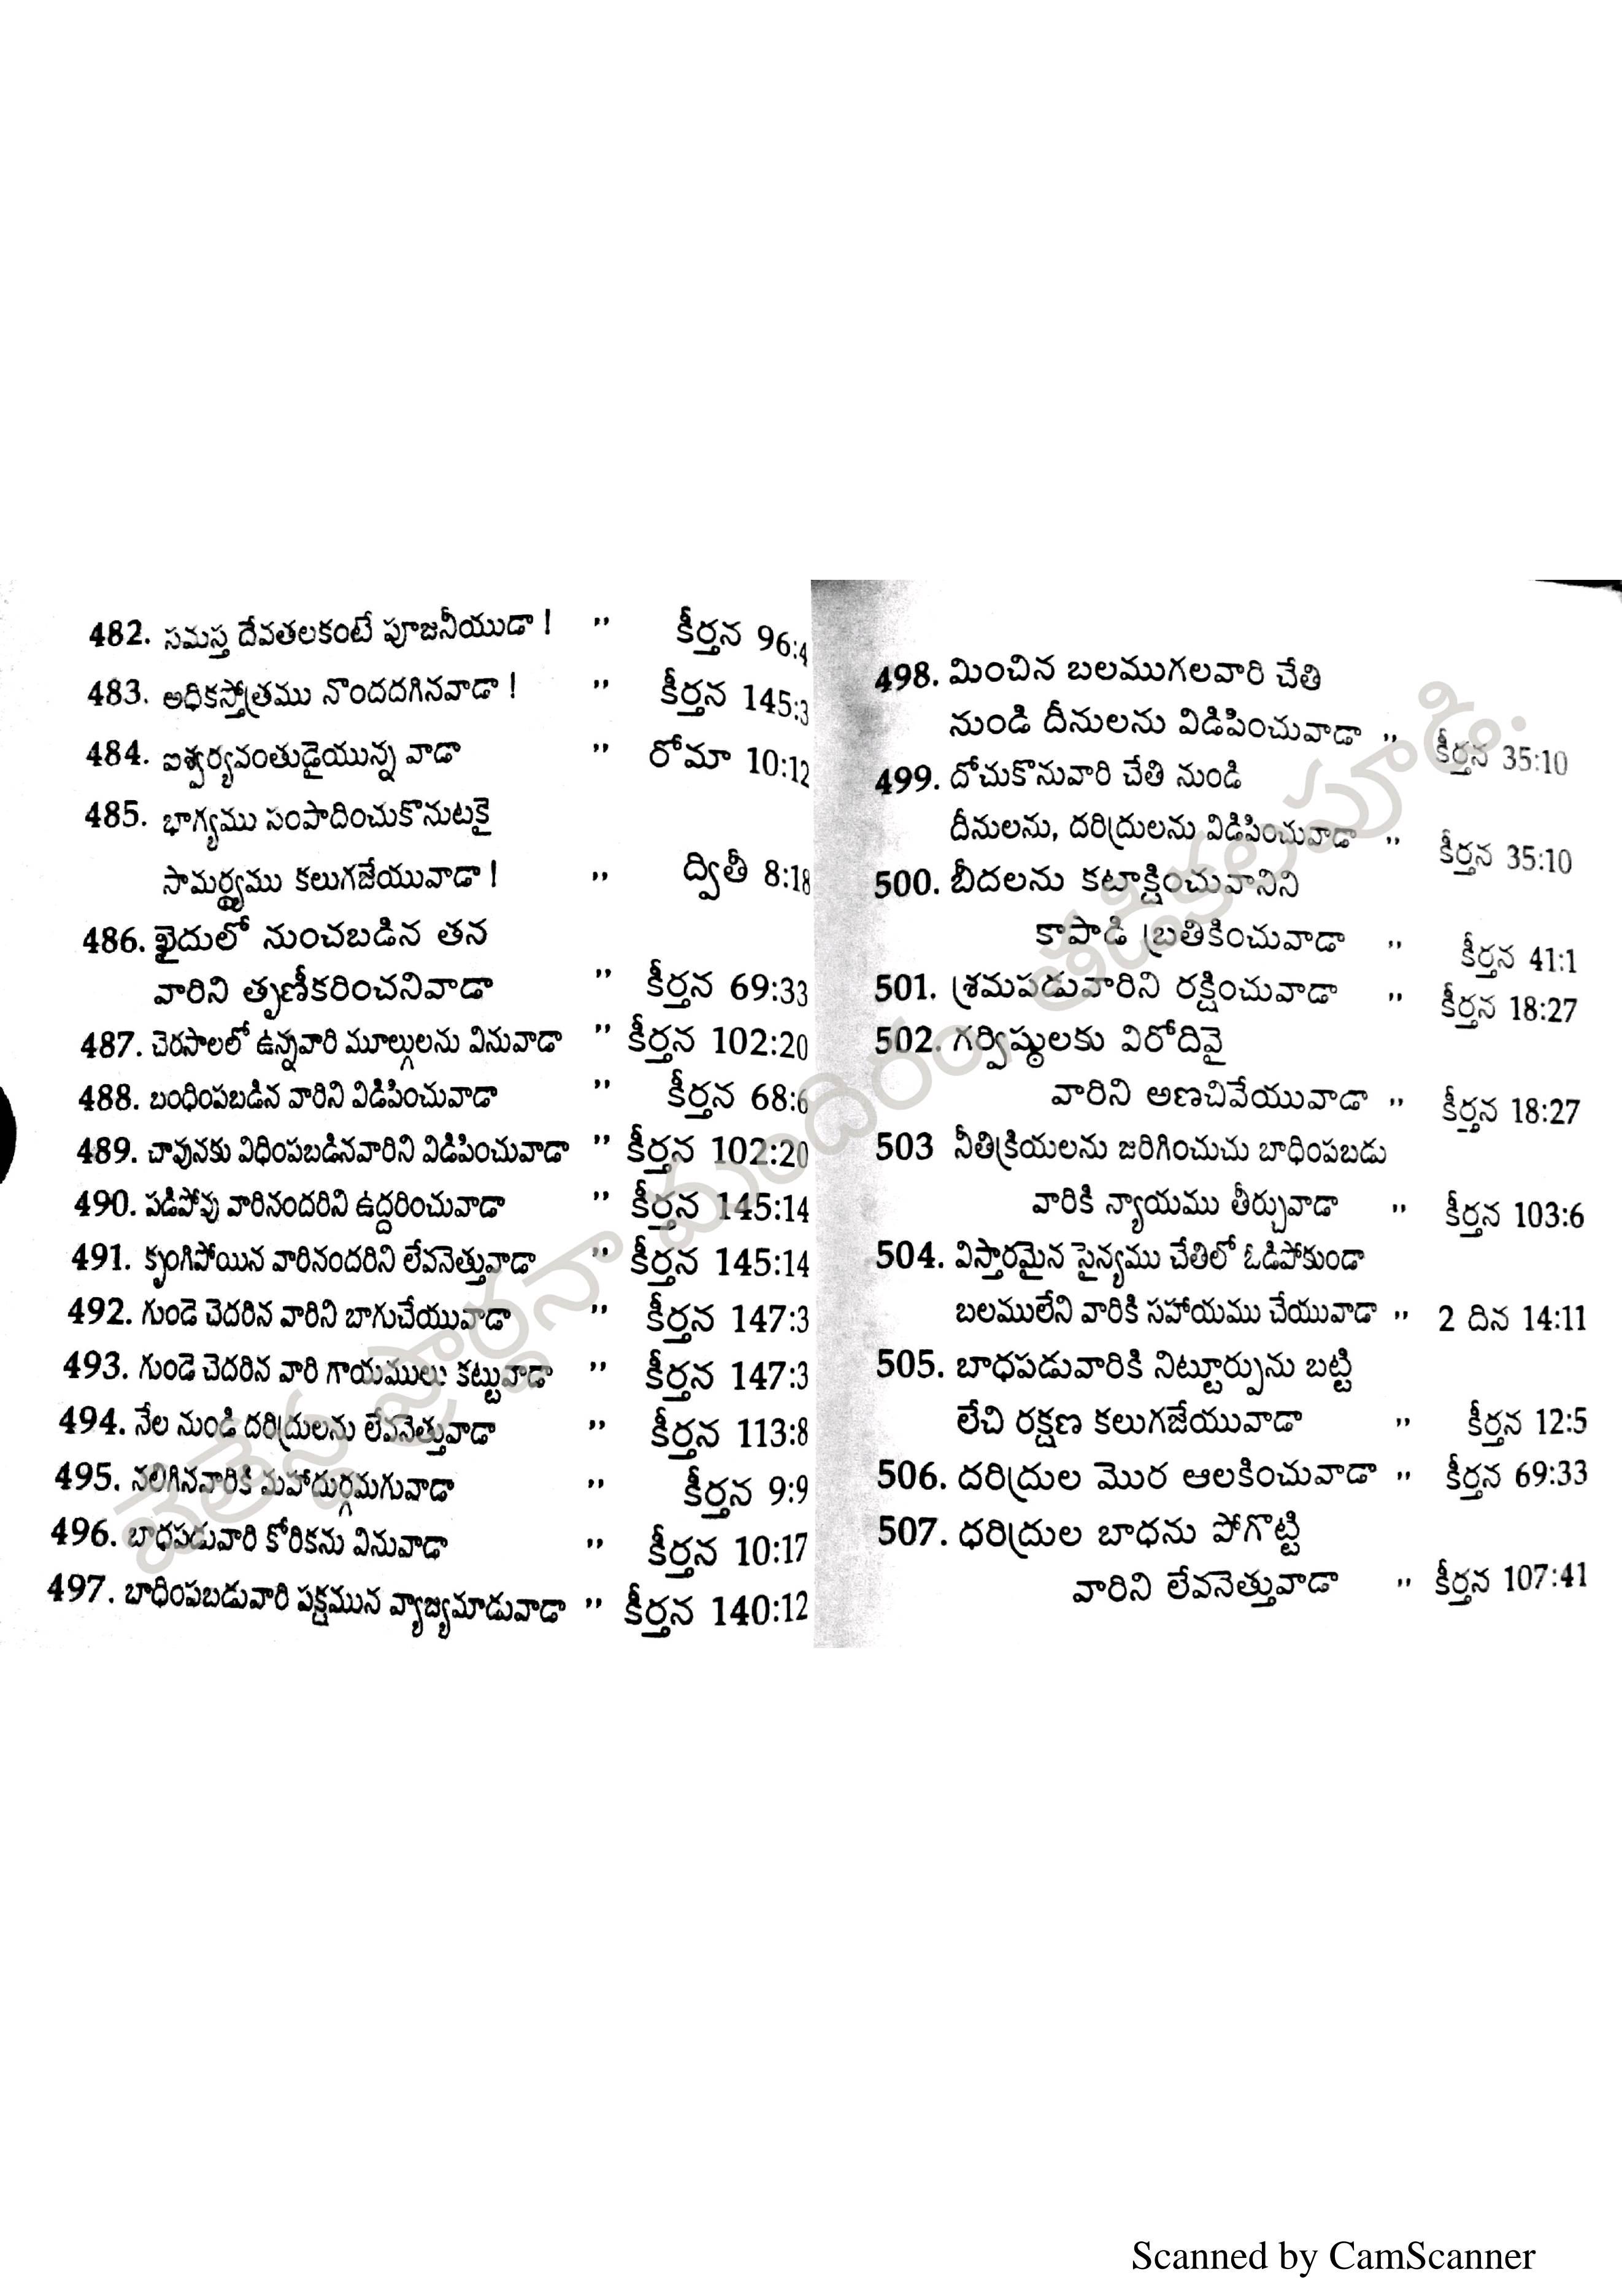 482. సమస్త దేవతలకంటే పూజనీయుడా ! ,, కీర్తన 96:4
483. అధికస్తోత్రము నొందదగినవాడా ! ,, కీర్తన 145:3
484. ఐశ్వర్యవంతుడైయున్న వాడా ,, రోమా 10:12
485. భాగ్యము సంపాదించుకొనుటకై
సామర్థ్యము కలుగజేయువాడా ! ,, ద్వితీ 8:18
486. ఖైదులో నుంచబడిన తన
వారిని తృణీకరించనివాడా ,, కీర్తన 69:33
487. చెరసాలలో ఉన్నవారి మూల్గులను వినువాడా ,, కీర్తన 102:20
488. బంధింపబడిన వారిని విడిపించువాడా ,, కీర్తన 68:6
489. చావునకు విధింపబడినవారిని విడిపించువాడా ,, కీర్తన 102:20
490. పడిపోవు వారినందరిని ఉద్దరించువాడా ,, కీర్తన 145:14
491. కృంగిపోయిన వారినందరిని లేవనెత్తువాడా ,, కీర్తన 145:14
492. గుండె చెదరిన వారిని బాగుచేయువాడా ,, కీర్తన 147:3
493. గుండె చెదరిన వారి గాయములు కట్టువాడా ,, కీర్తన 147:3
494. నేల నుండి దరిద్రులను లేవనెత్తువాడా ,, కీర్తన 113:8
495. నలిగినవారికి మహాదుర్గమగువాడా ,, కీర్తన 9:9
496. బాధపడువారి కోరికను వినువాడా ,, కీర్తన 10:17
497. బాధింపబడువారి పక్షమున వ్యాజ్యమాడువాడా ,, కీర్తన 140:12
498. మించిన బలముగలవారి చేతి
నుండి దీనులను విడిపించువాడా ,, కీర్తన 35:10
499. దోచుకొనువారి చేతి నుండి
దీనులను, దరిద్రులను విడిపించువాడా ,, కీర్తన 35:10
500. బీదలను కటాక్షించువానిని
కాపాడి బ్రతికించువాడా ,, కీర్తన 41:1
501. శ్రమపడువారిని రక్షించువాడా ,, కీర్తన 18:27
502. గర్విష్ఠులకు విరోదివై
వారిని అణచివేయువాడా ,, కీర్తన 18:27
503 నీతిక్రియలను జరిగించుచు బాధింపబడు
వారికి న్యాయము తీర్చువాడా ,, కీర్తన 103:6
504. విస్తారమైన సైన్యము చేతిలో ఓడిపోకుండా
బలములేని వారికి సహాయము చేయువాడా ,, 2 దిన 14:11
505. బాధపడువారికి నిట్టూర్పును బట్టి
లేచి రక్షణ కలుగజేయువాడా ,, కీర్తన 12:5
506. దరిద్రుల మొర ఆలకించువాడా ,, కీర్తన 69:33
507. ధరిద్రుల బాధను పోగొట్టి
వారిని లేవనెత్తువాడా ,, కీర్తన 107:41
ప్రార్థనా మందిరం
Scanned by CamScanner